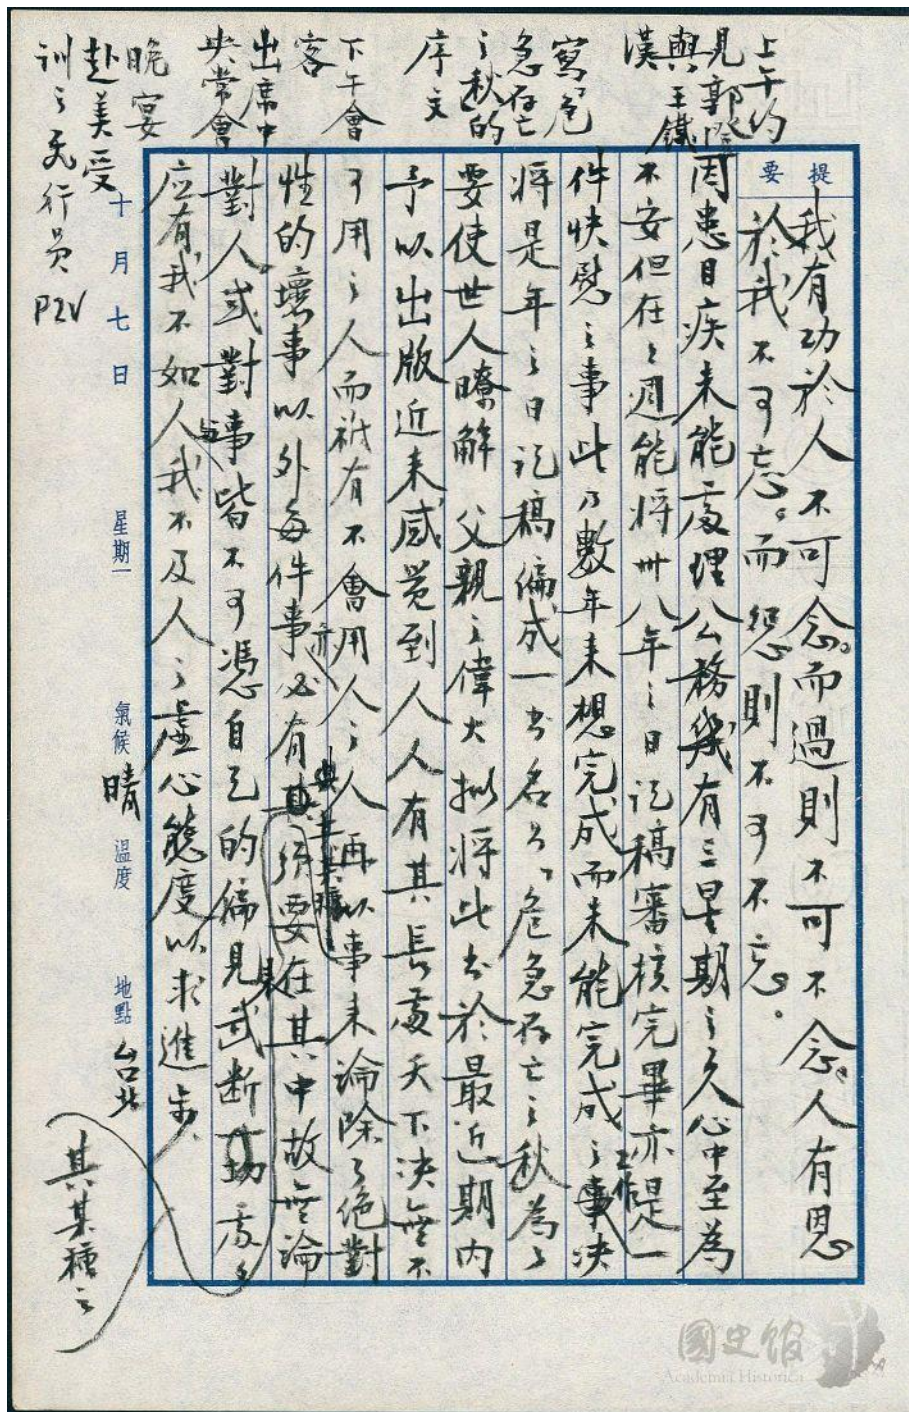 上午約
見郭
與王鐵
漢
寫「危
急存亡
之秋」的
序文
下午會
客
出席中
央常會
晚宴
赴美受
訓之飛行員
P2V
提要
我有功於人不可念。而過則不可不念。人有恩
於我不可忘。而怨則不可不忘。
因患目疾未能處理公務幾有三星期之久心中至為
不安但在上週能將卅八年之日記稿審核完畢亦是一
件快慰之事此乃數年來想完成而未能完成之工作決
將是年之日記稿編成一书名為「危急存亡之秋」為了
要使世人瞭解 父親之偉大擬將此书於最近期內
予以出版近來感覺到人人有其長處天下決無不
可用之人而祇有不會用人之人再以事來論除了絕對
性的壞事以外每件事亦必有其要在其中故無論
對人或對事皆不可憑自己的偏見武断
應有我不如人與我不及人之虛心態度以求進步
其某種之
十月七日 星期一 氣候 晴 溫度 地點 台北
國史館
Academia Historica